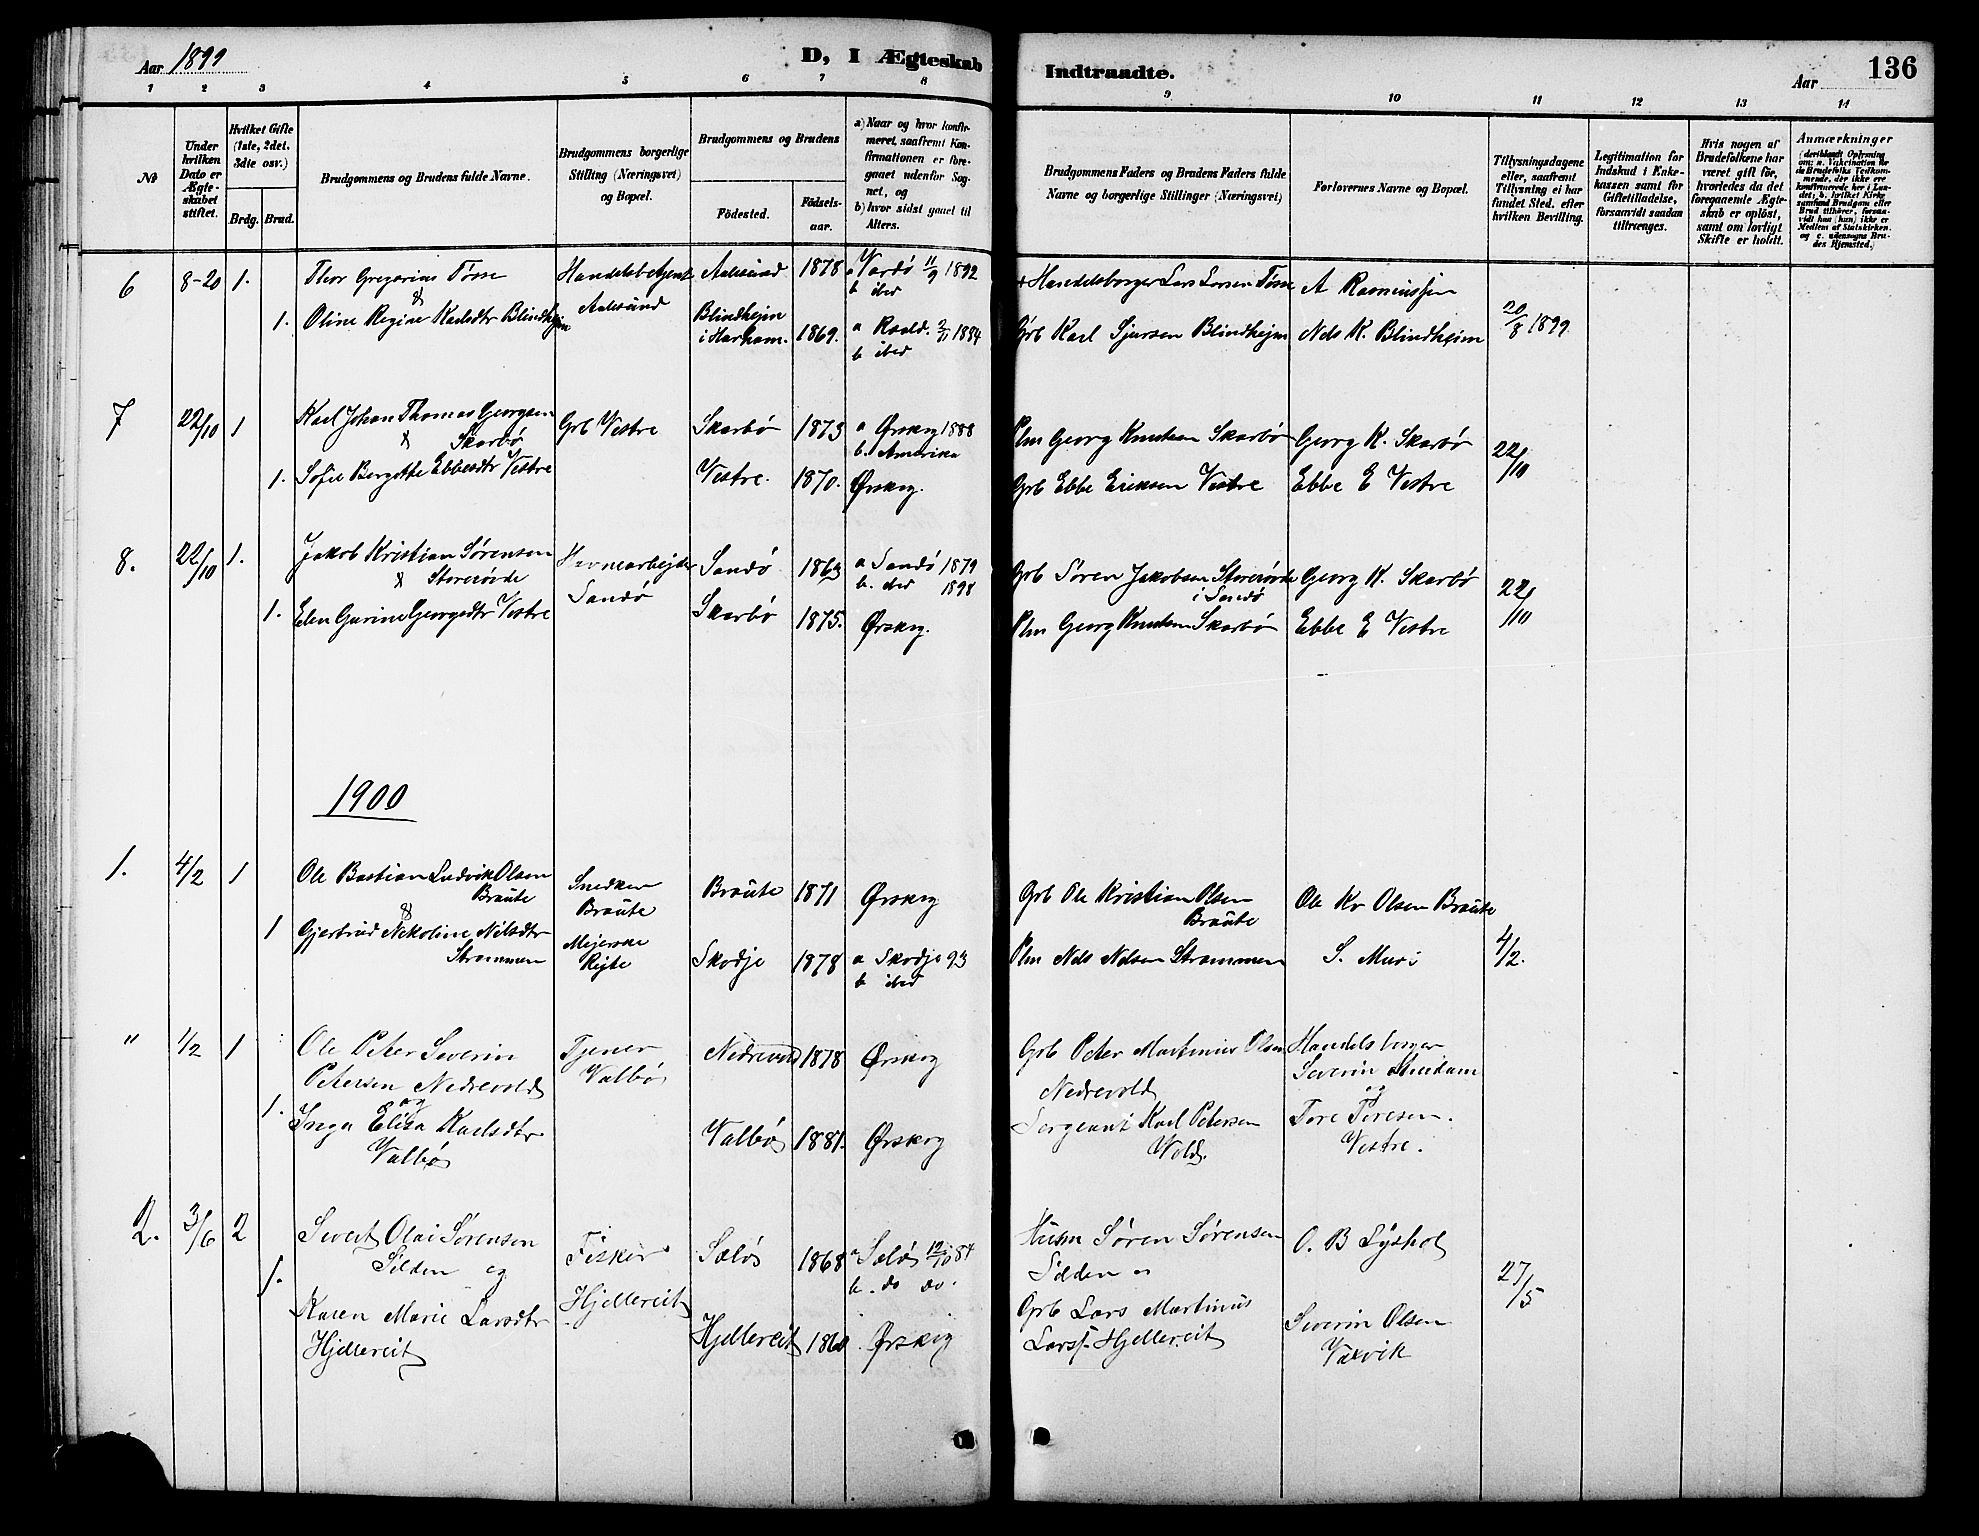 Aar 1899
D, I Ægteskab Indtraadte.
Aar
136
1 2 3 4 5 6 7 8 9 10 11 12 13 14
№
Under hvilken Dato er Ægteskabet stiftet.
Hvilket Gifte (1ste, 2det. 3die osv.)
Brdg. Brud.
Brudgommens og Brudens fulde Navne.
Brudgommens borgerlige Stilling (Næringsvei) og Bopæl.
Brudgommens og Brudens
Födested.
Födselsaar.
a) Naar og hvor konfirmeret, saafremt Konfirmationen er foregaaet udenfor Sognet, og
b) hvor sidst gaaet til Alters.
Brudgommens Faders og Brudens Faders fulde Navne og borgerlige Stillinger (Næringsvei)
Forlovernes Navne og Bopæl.
Tillysningsdagene eller, saafremt Tillysning ei har fundet Sted. efter hvilken Bevilling.
Legitimation for Indskud i Enkekassen samt for Giftetilladelse, forsaavidt saadan tiltrænges.
Hvis nogen af Brudefolkene har været gift för, hvorledes da det foregaaende Ægteskab er oplöst, samt om lovligt Skifte er holdt.
Anmærkninger
6 8-20 1. Thor Gregorius Tosse Handelsbetjent Aalesund 1878 a Vardö 11/9 1892
& Aalesund b ibid
1. Oline Regine Karlsdtr Blindhejm Blindhejm i Harham. 1869. a Roald. 2/11 1884
b ibid
+ Handelsborger Lars Larsen Tosse A Rasmussen
Grb Karl Sjursen Blindhejm Nils K. Blindheim 20/8 1899
7 22/10 1 Karl Johan Thomas Georgsen Skarbö Grb Vestre Skarbö 1873 a Ørskog 1888
& b. Amerika
1. Sofie Bergitte Ebbesdtr Vestre Vestre. 1870. Ørskog.
Plm Georg Knutsen Skarbö Georg K. Skarbö 22/10
Grb Ebbe Eriksen Vestre Ebbe E Vestre
8. 22/10 1. Jakob Kristian Sørensen Storerövde Havnearbejder Sandö Sandö 1863 a Sandö 1879
& b. ibid 1898
1. Elen Gurine Georgsdtr Vestre Skarbö 1875. Ørskog.
Grb Sören Jakobsen Storerövde i Sandö Georg K. Skarbö 22/10
Plm Georg Knutsen Skarbö Ebbe E Vestre
1900
1. 4/2 1 Ole Bastian Ludvik Olsen Braute Snedker Braute Braute 1871 Ørskog
&
1 Gjertrud Nekoline Nilsdtr Strømmen Mejerske Skodje 1878 a Skodje 93
b ibid
Grb Ole Kristian Olsen Braute Ole Kr Olsen Braute
Plm Nils Nilsen Strømmen S. Muri 4/2.
" 4/2 1 Ole Peter Severin Petersen Nedrevold Tjener Valbö Nedrevold 1878 Ørskog
og
1. Inga Elisa Karlsdtr Valbö Valbö 1881. Ørskog
Grb Peter Martinius Olsen Nedrevold Handelsborger Severin
og
Sergeant Karl Petersen Vold. Tore Toresen. Vestre.
2. 3/6 2 Sivert Olai Sörensen Silden og Fisker Hjellereit Sælös 1868 a Selö 12/10 84
b. do do.
1. Karen Marie Larsdtr Hjellereit Hjellereit 1860 Ørskog
Husm Sören Sörensen Silden O. B Lyshol
Grb Lars Martinus Larss. Hjellereit Severin Olsen Vaxvik 27/5